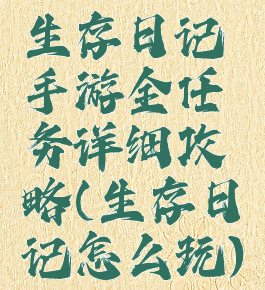 生存日记
手游全任
务详细攻
略(生存日
记怎么玩)